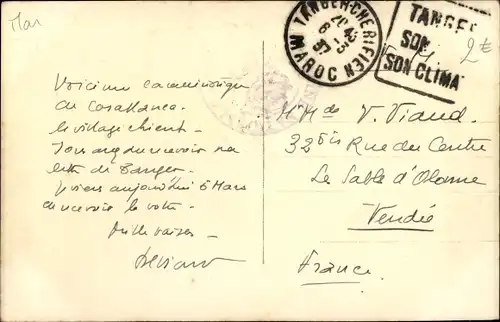 Mar
TANGER-CHERIFIEN
20 45
6-3
37
MAROC
TANGER
SON
SON CLIMA
2€
Voici une caractéristique
de Casablanca.
le village
Vous avez du recevoir ma
lettre de Tanger.
Je viens aujourd'hui 6 Mars
de recevoir la votre.
Mille baisers
V. Viaud.
32bis Rue du Centre
Le Sable d'Olonne
Vendée
France.